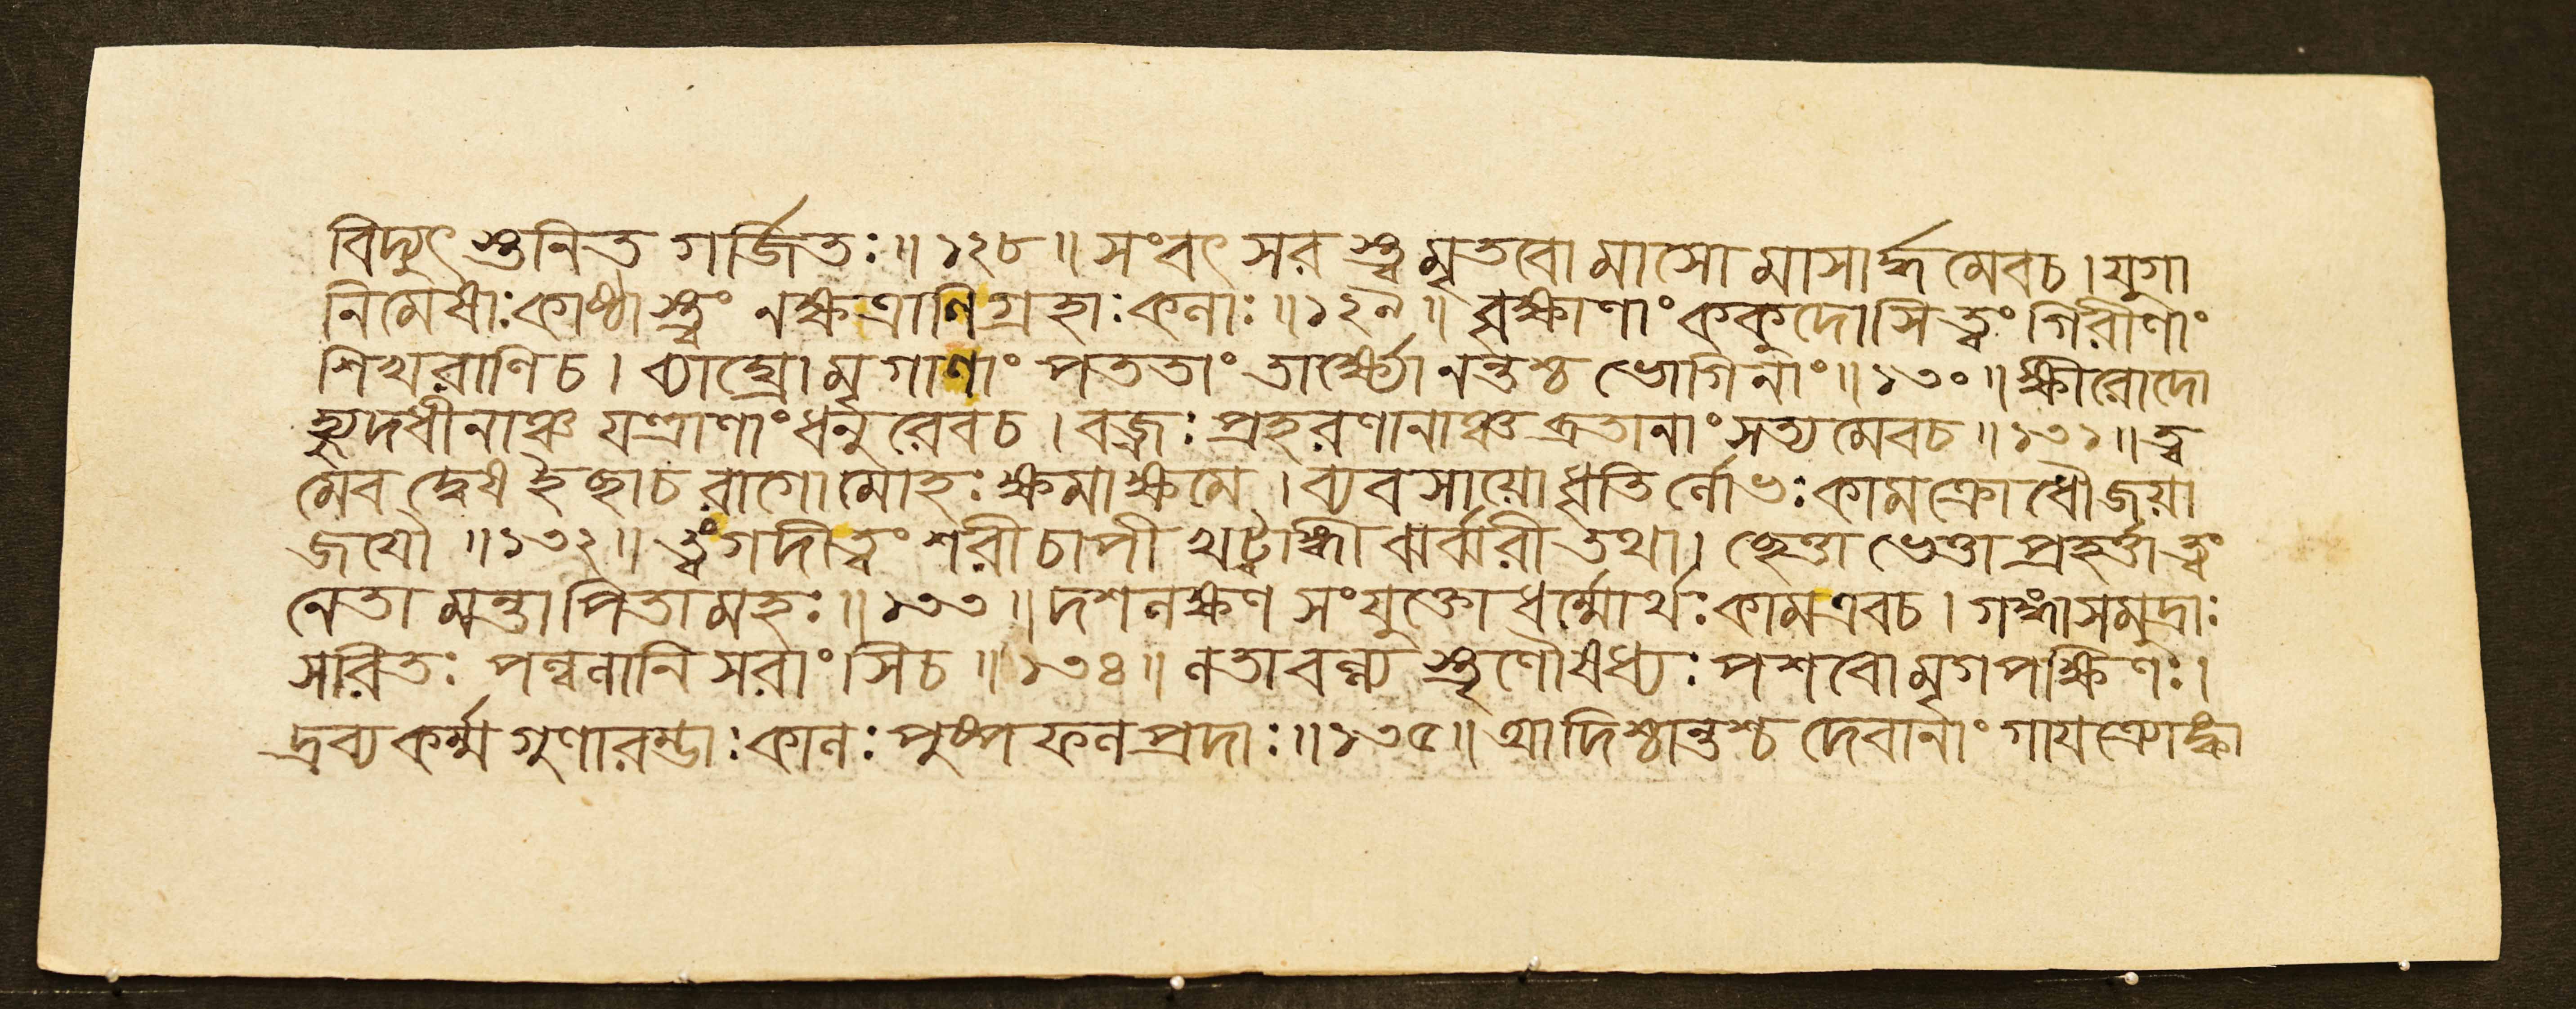 বিদ্যুৎ স্তনিত গর্জিতঃ॥১২৮॥ সংবৎ সর স্ত্বমৃতবো মাসো মাসার্দ্ধ মেবচ।যুগা
নিমেষাঃকাষ্ঠাস্ত্বং নক্ষত্রাণিগ্রহাঃকলাঃ॥১২৯॥ বৃক্ষাণাং ককুদোসি ত্বং গিরীণাং
শিখরাণিচ। ব্যাঘ্রো মৃগাণাং পততাং তার্ক্ষ্যোনন্তশ্চ ভোগিনাং॥১৩০॥ ক্ষীরোদো
হ্যুদধীনাঞ্চ যন্ত্রাণাং ধনুরেবচ। বজ্রঃ প্রহরণানাঞ্চ ব্রতানাং সত্যমেবচ॥১৩১॥ ত্ব
মেব দ্বেষ ইচ্ছাচ রাগো মোহঃক্ষমাক্ষমে। ব্যবসায়ো ধৃতির্লোভঃকামক্রোধৌজয়া
জয়ৌ॥১৩২॥ ত্বংগদীত্বং শরীচাপী খট্বাঙ্গী ঝর্ঝরীতথা। ছেত্তা ভেত্তা প্রহর্ত্তা ত্বং
নেতা মন্তা পিতামহঃ॥১৩৩॥ দশলক্ষণ সংযুক্তো ধর্ম্মোর্থঃকামএবচ। গঙ্গাসমুদ্রাঃ
সরিতঃ পল্বলানি সরাংসিচ॥১৩৪॥ লতাবল্ল্য স্তৃণৌষধ্যঃপশবোমৃগপক্ষিণঃ।
দ্রব্যকর্ম্ম গুণারম্ভাঃকালঃপুষ্পফলপ্রদাঃ॥১৩৫॥ আদিশ্চান্তশ্চ দেবানাং গায়ত্র্যোঙ্কা